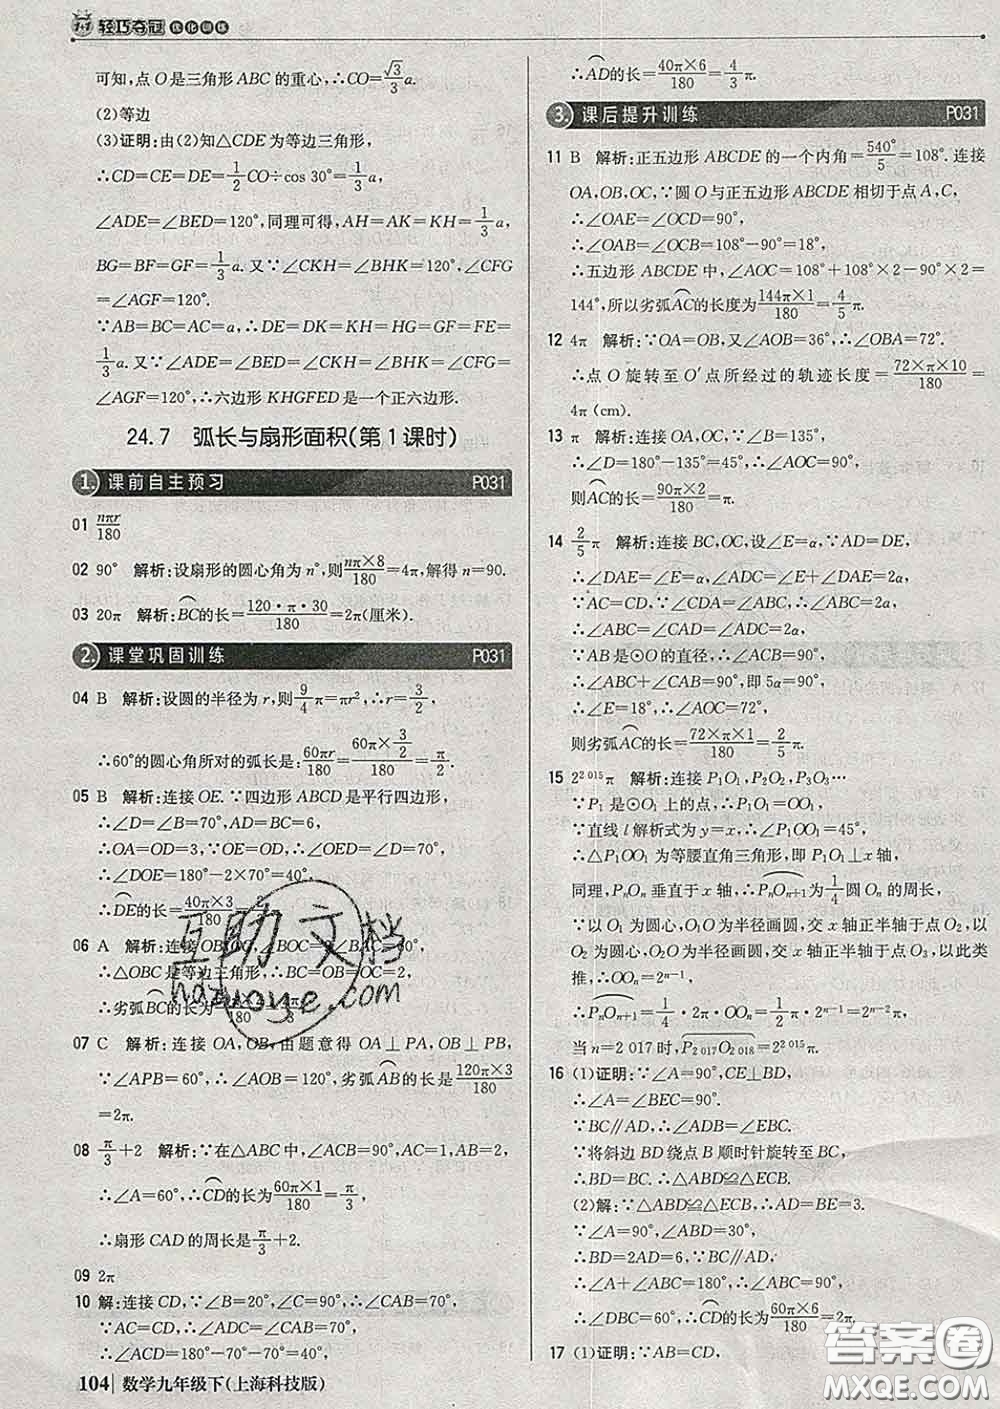 1+1 轻巧夺冠 优化训练
可知,点O是三角形ABC的重心,∴CO=√3/3 a.
(2)等边
(3)证明:由(2)知△CDE为等边三角形,
∴CD=CE=DE=1/2 CO÷cos 30°=1/3 a,
∠ADE=∠BED=120°,同理可得,AH=AK=KH=1/3 a,
BG=BF=GF=1/3 a.又∵∠CKH=∠BHK=120°,∠CFG
=∠AGF=120°.
∵AB=BC=AC=a,∴DE=DK=KH=HG=GF=FE=
1/3 a.又∵∠ADE=∠BED=∠CKH=∠BHK=∠CFG=
∠AGF=120°,∴六边形KHGFED是一个正六边形.
24.7 弧长与扇形面积(第1课时)
1. 课前自主预习 P031
01 nπr/180
02 90° 解析:设扇形的圆心角为n°,则nπ×8/180=4π,解得n=90.
03 20π 解析:⌒BC的长=120·π·30/180=2π(厘米).
2. 课堂巩固训练 P031
04 B 解析:设圆的半径为r,则9/4 π=πr²,∴r=3/2,
∴60°的圆心角所对的弧长:60πr/180=60π×3/2/180=π/2.
05 B 解析:连接OE.∵四边形ABCD是平行四边形,
∴∠D=∠B=70°,AD=BC=6,
∴OA=OD=3,∵OE=OD,∴∠OED=∠D=70°,
∴∠DOE=180°-2×70°=40°,
∴⌒DE的长=40π×3/180=
06 A 解析:连接OB,OC,∠BOC=∠BAC=60°,
∴△OBC是等边三角形,
∴劣弧⌒BC的长为
07 C 解析:连接OA,OB,由题意得OA⊥PA,OB⊥PB,
∵∠APB=60°,∴∠AOB=120°,劣弧⌒AB的长是120π×3/180
=2π.
08 π/3+2 解析:∵在△ABC中,∠ACB=90°,AC=1,AB=2,
∴∠A=60°,∴⌒CD的长为60π×1/180=π/3,
∴扇形CAD的周长是π/3+2.
09 2π
10 解:连接CD,∵∠B=20°,∠C=90°,∴∠CAB=70°,
∵AC=CD,∴∠ADC=∠CAB=70°,
∴∠ACD=180°-70°-70°=40°,
104 数学九年级下(上海科技版)
∴⌒AD的长=40π×6/180=4/3 π.
3. 课后提升训练 P031
11 B 解析:正五边形ABCDE的一个内角=540°/5=108°.连接
OA,OB,OC,∵圆O与正五边形ABCDE相切于点A,C,
∴∠OAE=∠OCD=90°,
∴∠OAB=∠OCB=108°-90°=18°,
∴五边形ABCDE中,∠AOC=108°+108°×2-90°×2=
144°,所以劣弧⌒AC的长度为144π×1/180=4/5 π.
12 4π 解析:∵OA=OB,又∠AOB=36°,∴∠OBA=72°.
∴点O旋转至O′点所经过的轨迹长度=72×π×10/180=
4π(cm).
13 π 解析:连接OA,OC,∵∠B=135°,
∴∠D=180°-135°=45°,∴∠AOC=90°,
则⌒AC的长=90π×2/180=π.
14 2/5 π 解析:连接BC,OC,设∠E=α,∵AD=DE,
∴∠DAE=∠E=α,∴∠ADC=∠E+∠DAE=2α,
∵AC=CD,∴∠CDA=∠ABC,∴∠ABC=2α,
∴∠ABC=∠CAD=∠ADC=2α,
∵AB是⊙O的直径,∴∠ACB=90°,
∴∠ABC+∠CAB=90°,即5α=90°,
∴∠E=18°,∴∠AOC=72°,
则劣弧⌒AC的长=72×π×1/180=2/5 π.
15 2²⁰¹⁵π 解析:连接P₁O₁,P₂O₂,P₃O₃…
∵P₁是⊙O₁上的点,∴P₁O₁=OO₁,
∵直线l解析式为y=x,∴∠P₁OO₁=45°,
∴△P₁OO₁为等腰直角三角形,即P₁O₁⊥x轴,
同理,PₙOₙ垂直于x轴,∴⌒PₙOₙ₊₁为1/4圆Oₙ的周长,
∵以O₁为圆心,O₁O为半径画圆,交x轴正半轴于点O₂,以
O₂为圆心,O₂O为半径画圆,交x轴正半轴于点O₃,以此类
推,∴OOₙ=2ⁿ⁻¹,
∴⌒PₙOₙ₊₁=1/4·2π·OOₙ=1/2 π·2ⁿ⁻¹=2ⁿ⁻²π,
当n=2 017时,⌒P₂₀₁₇O₂₀₁₈=2²⁰¹⁵π.
16 (1)证明:∵∠A=90°,CE⊥BD,
∴∠A=∠BEC=90°.
∵BC∥AD,∴∠ADB=∠EBC.
∵将斜边BD绕点B顺时针旋转至BC,
∴BD=BC.∴△ABD≌△ECB.
(2)解:∵△ABD≌△ECB,∴AD=BE=3.
∵∠A=90°,∠ABD=30°,
∴BD=2AD=6,∵BC∥AD,
∴∠A+∠ABC=180°,∴∠ABC=90°,
∴∠DBC=60°,∴⌒CD的长=60π×6/180=2π.
17 (1)证明:∵AB=CD,
互助文档
hdzuoye.com
答案圈
MXQE.COM